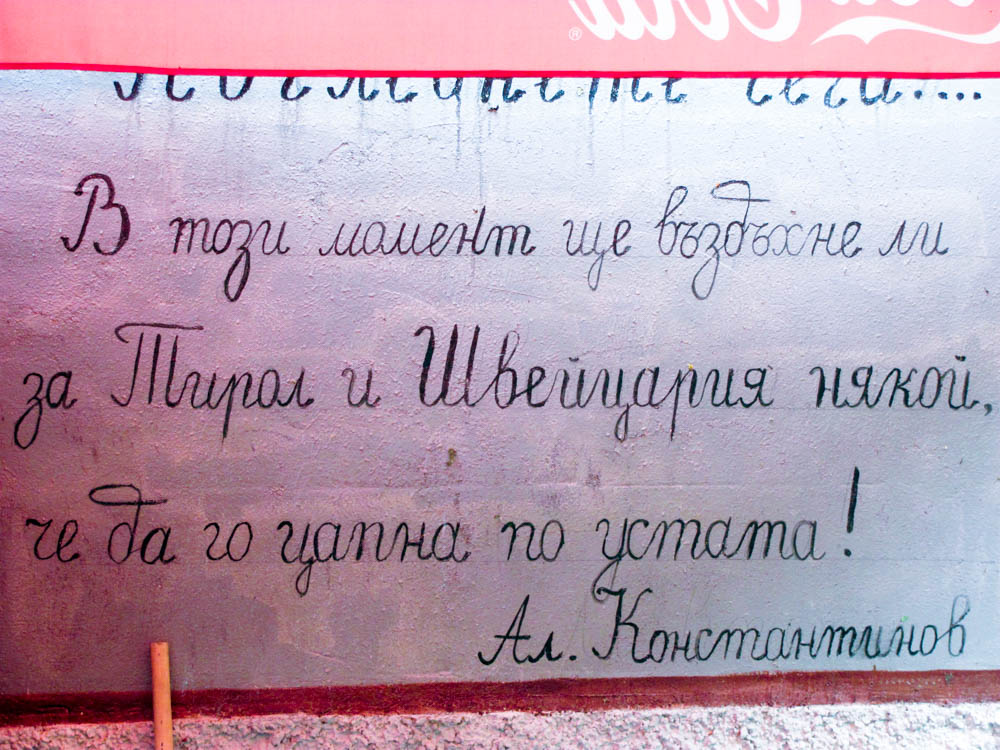 Погледнете сега....
В този момент ще въздъхне ли
за Тирол и Швейцария някой,
че да го цапна по устата!
Ал. Константинов